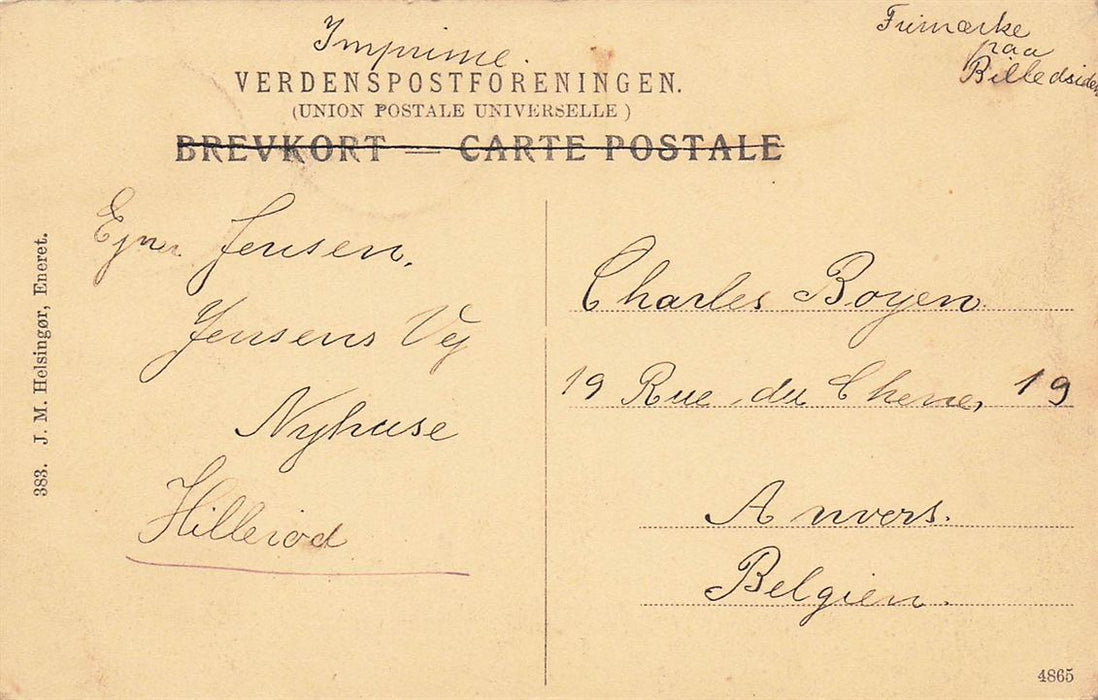 Imprime.
Frimærke
paa
Billedsiden
VERDENSPOSTFORENINGEN.
(UNION POSTALE UNIVERSELLE)
BREVKORT — CARTE POSTALE
383. J. M. Helsingør, Eneret.
Ejner Jensen.
Jensens Vej
Nyhuse
Hillerød
Charles Boyen
19 Rue du Chene, 19
Anvers.
Belgien.
4865